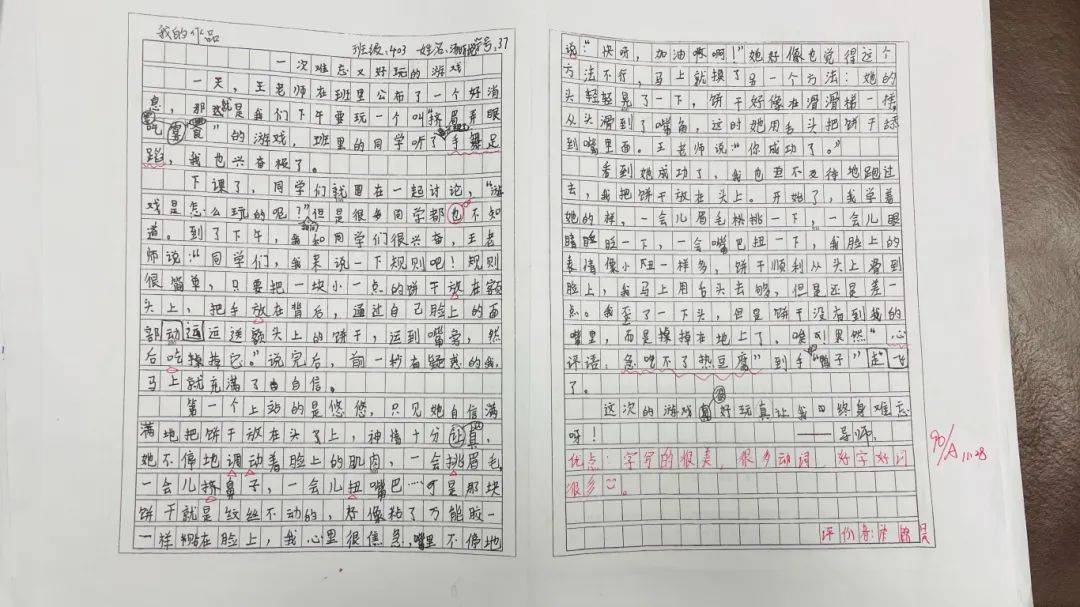 我的作品
班级:403 姓名: 学号:37
一次难忘又好玩的游戏
一天,王老师在班里公布了一个好消
息,那就是我们下午要玩一个叫“挤眉弄眼
”的游戏,班里的同学听了手舞足
蹈,我也兴奋极了。
下课了,同学们就围在一起讨论,“游
戏是怎么玩的呢?”但是很多同学都也不知
道。到了下午,我和同学们很兴奋,王老
师说:“同学们,我来说一下规则吧!规则
很简单,只要把一块小一点的饼干放在额
头上,把手放在背后,通过自己脸上的面
部动运送额头上的饼干,运到嘴旁,然
后吃掉它。”说完后,前一秒在疑惑的我,
马上就充满了自信。
第一个上站的是悠悠,只见她自信满
满地把饼干放在头了上,神情十分认真,
她不停地调动着脸上的肌肉,一会挑眉毛,
一会儿挤鼻子,一会儿扭嘴巴……可是那块
饼干就是纹丝不动的,好像粘了万能胶一
一样粘在脸上,我心里很焦急,嘴里不停地
说:“快呀,加油啊!”她好像也觉得这个
方法不行,马上就换了另一个方法:她的
头轻轻晃了一下,饼干好像在滑滑梯一样,
从头滑到了嘴角,这时她用舌头把饼干舔
到嘴里面。王老师说:“你成功了。”
看到她成功了,我也迫不及待地跑过
去,我把饼干放在头上。开始了,我学着
她的样,一会儿眉毛挑一下,一会儿眼
睛眨一下,一会嘴巴扭一下,我脸上的
表情像小丑一样多,饼干顺利从头上滑到
脸上,我马上用舌头去够,但是还是差一
点。我歪了一下头,但是饼干没有到我的
嘴里,而是掉在地上了,唉!果然“心
急吃不了热豆腐”到手“鸭子”走“飞
了。
这次的游戏真好玩真让我终身难忘
呀!
——导师
评语:
优点:字写的很美,很多动词,好字好词
很多
。
评价者:
90/A 11.28